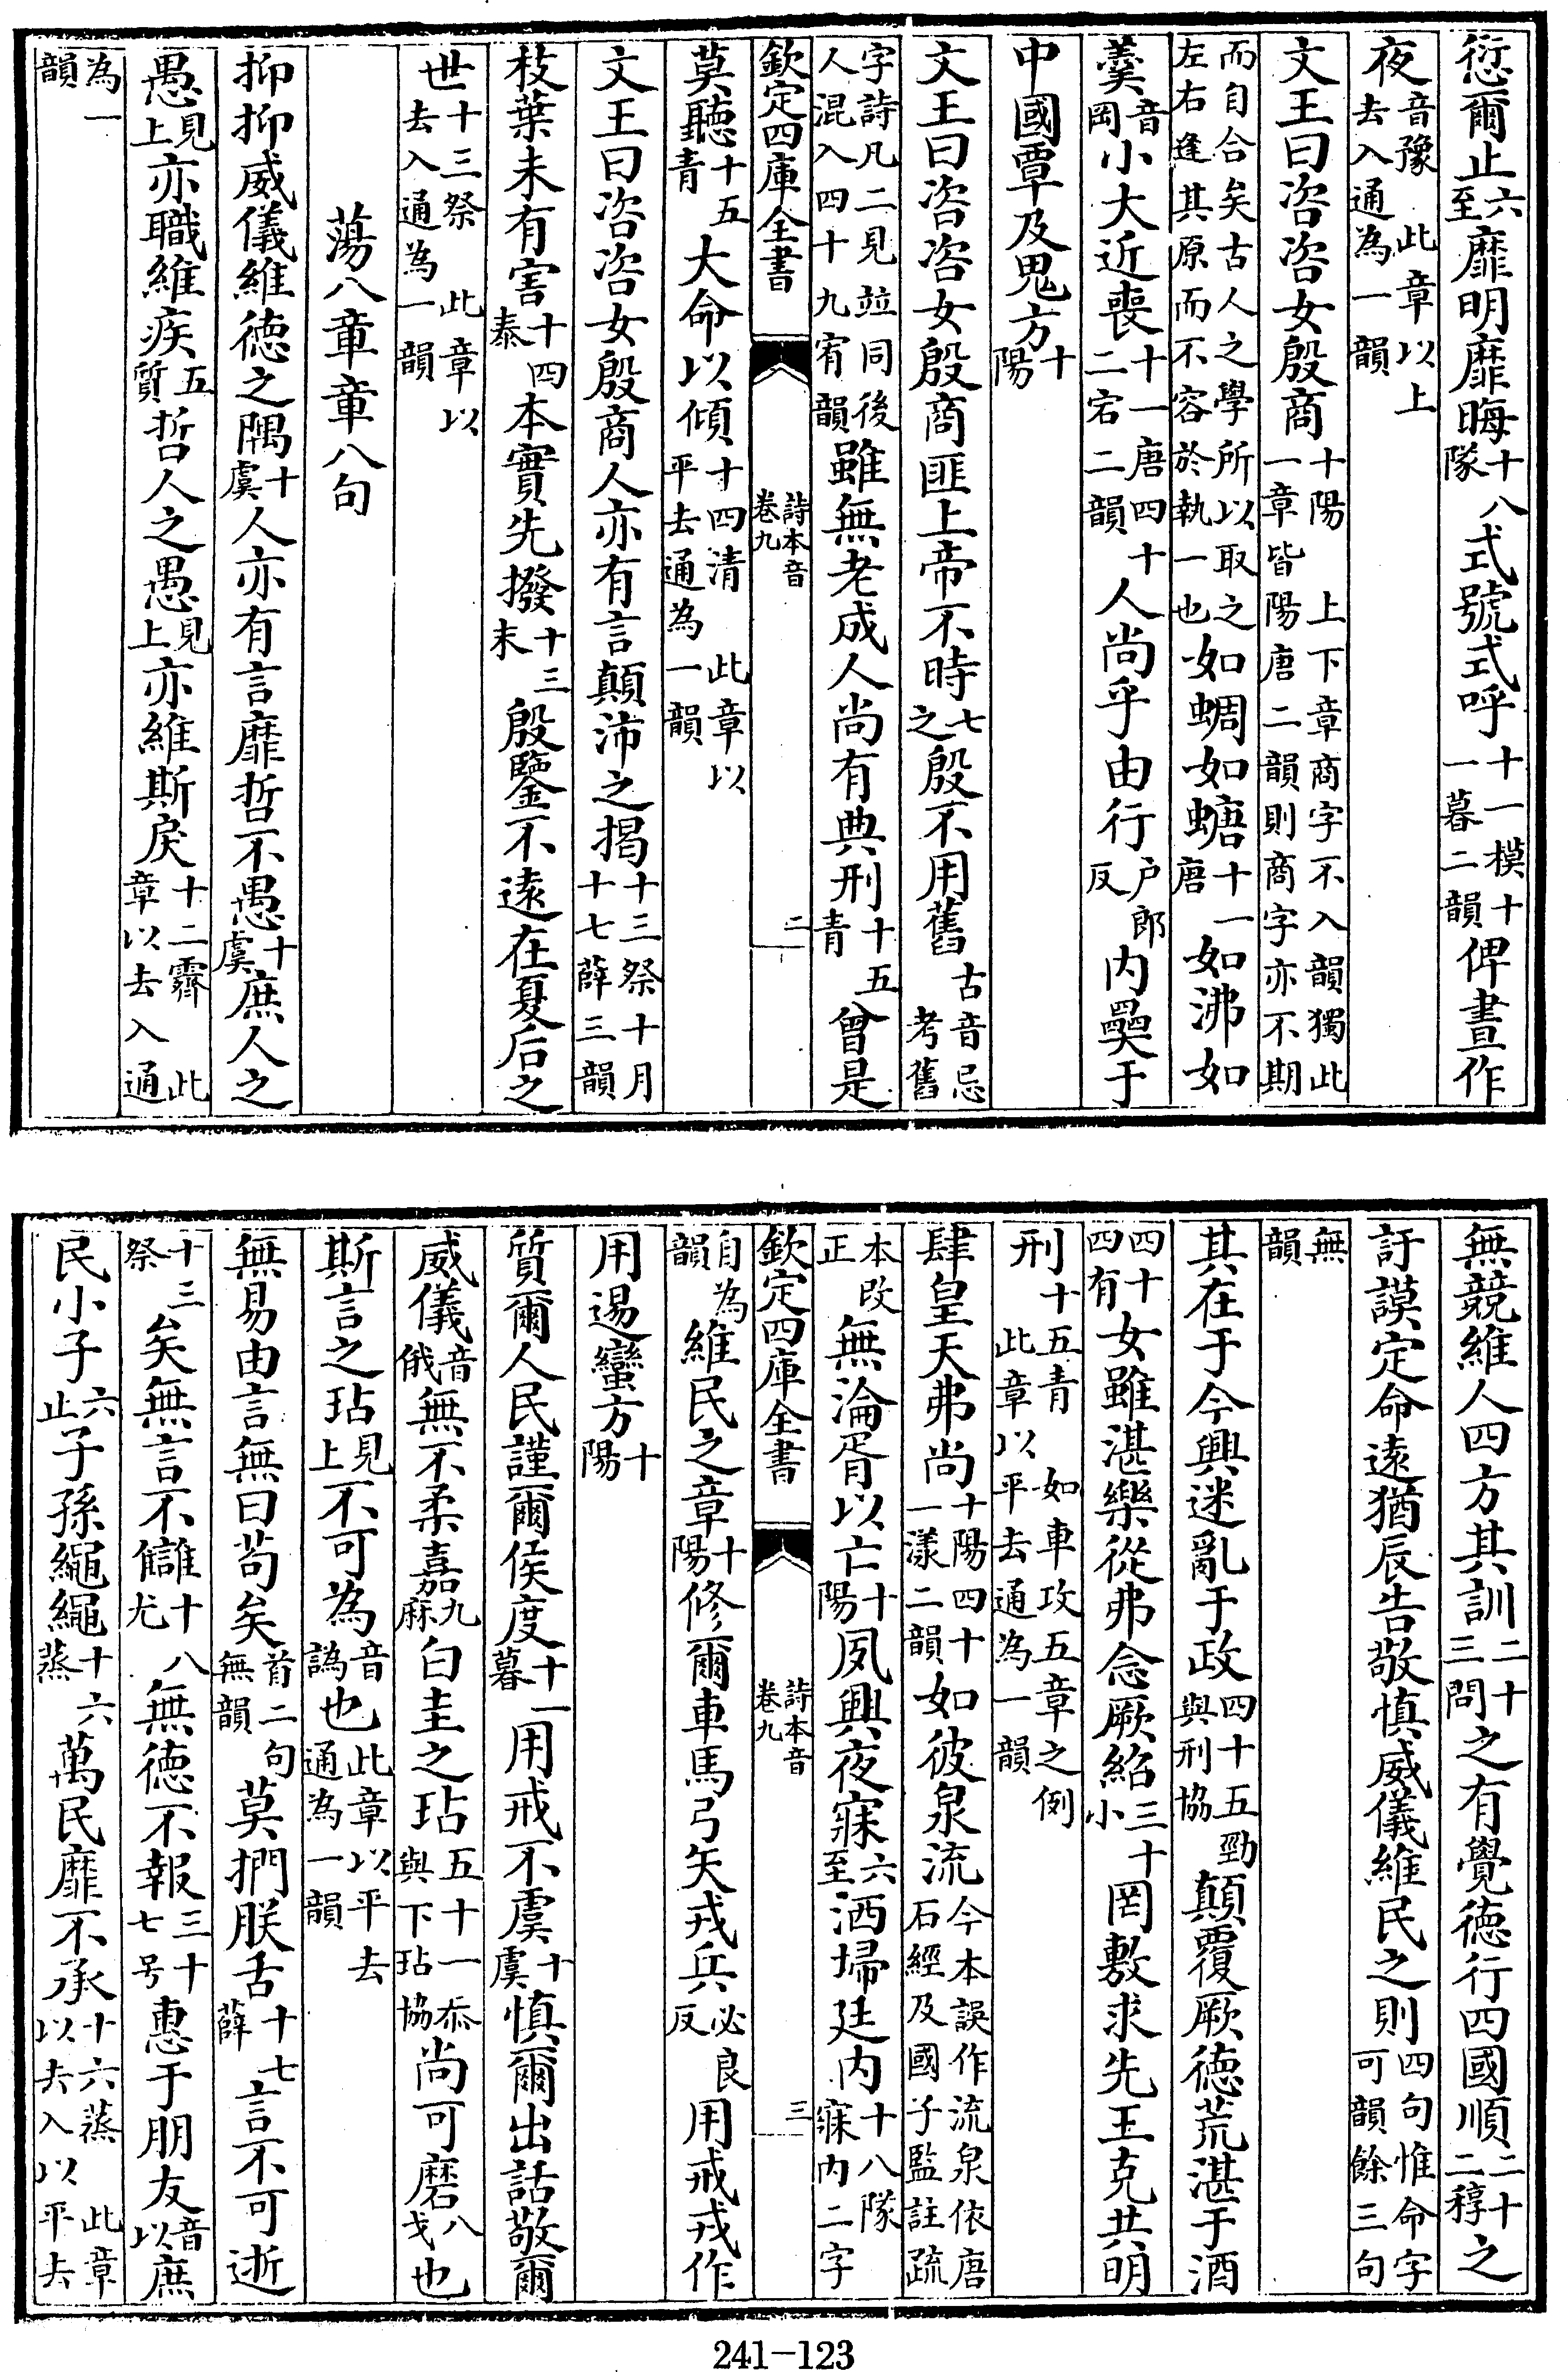 愆爾止六至靡明靡晦十八隊式號式呼十一模十一暮二韻俾晝作
夜音豫 此章以上去入通為一韻
文王曰咨咨女殷商十陽 上下章商字不入韻獨此一章皆陽唐二韻則商字亦不期
而自合矣古人之學所以取之左右逢其原而不容於執一也如蜩如螗十一唐如沸如
羹音岡小大近喪十一唐四十二宕二韻人尚乎由行户郎反内奰于
中國覃及鬼方十陽
文王曰咨咨女殷商匪上帝不時七之殷不用舊古音忌考舊
字詩凡二見竝同後人混入四十九宥韻雖無老成人尚有典刑十五青曾是
欽定四庫全書 詩本音卷九 二
莫聽十五青大命以傾十四清 此章以平去通為一韻
文王曰咨咨女殷商人亦有言顛沛之揭十三祭十月十七薛三韻
枝葉未有害十四泰本實先撥十三末殷鑒不遠在夏后之
世十三祭 此章以去入通為一韻
蕩八章章八句
抑抑威儀維徳之隅十虞人亦有言靡哲不愚十虞庶人之
愚見上亦職維疾五質哲人之愚見上亦維斯戾十二霽 此章以去入通
為一韻
無競維人四方其訓二十三問之有覺徳行四國順二十二稕之
訏謨定命遠猶辰告敬慎威儀維民之則四句惟命字可韻餘三句
無韻
其在于今興迷亂于政四十五勁與刑協顛覆厥徳荒湛于酒
四十四有女雖湛樂從弗念厥紹三十小罔敷求先王克共明
刑十五青 如車攻五章之例此章以平去通為一韻
肆皇天弗尚十陽四十一漾二韻如彼泉流今本誤作流泉依唐石經及國子監註疏
本改正無淪胥以亡十陽夙興夜寐六至洒埽廷内十八隊寐内二字
欽定四庫全書 詩本音卷九 三
自為韻維民之章十陽修爾車馬弓矢戎兵必良反用戒戎作
用逷蠻方十陽
質爾人民謹爾侯度十一暮用戒不虞十虞慎爾出話敬爾
威儀音俄無不柔嘉九麻白圭之玷五十一忝與下玷協尚可磨八戈也
斯言之玷見上不可為音譌也此章以平去通為一韻
無易由言無曰苟矣首二句無韻莫捫朕舌十七薛言不可逝
十三祭矣無言不讎十八尤無徳不報三十七号惠于朋友音以庶
民小子六止子孫繩繩十六蒸萬民靡不承十六蒸 此章以去入以平去
241-123